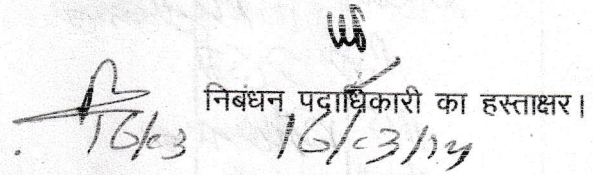 निबंधन पदाधिकारी का हस्ताक्षर।
16/03 16/03/14